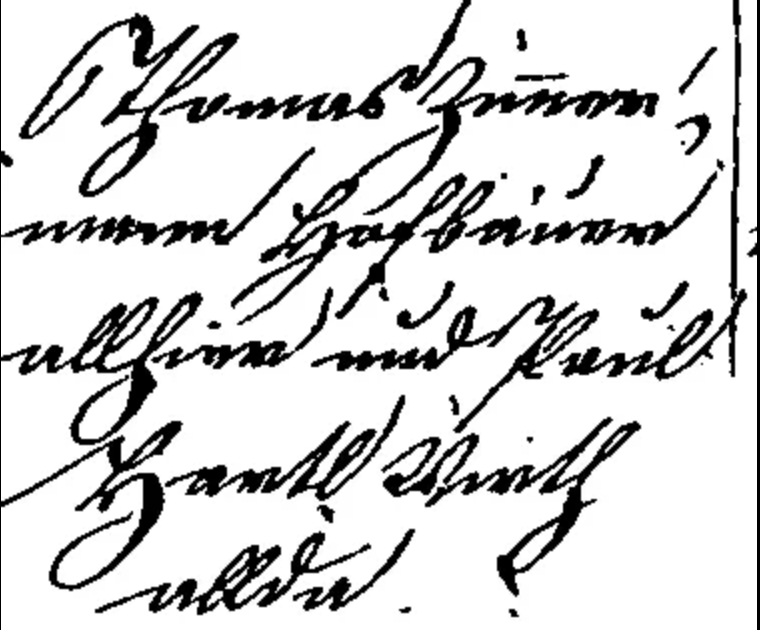 Thomas Zim̅er
mann Hofbauer
allhier und Paul
Hartl Wirth
allda.